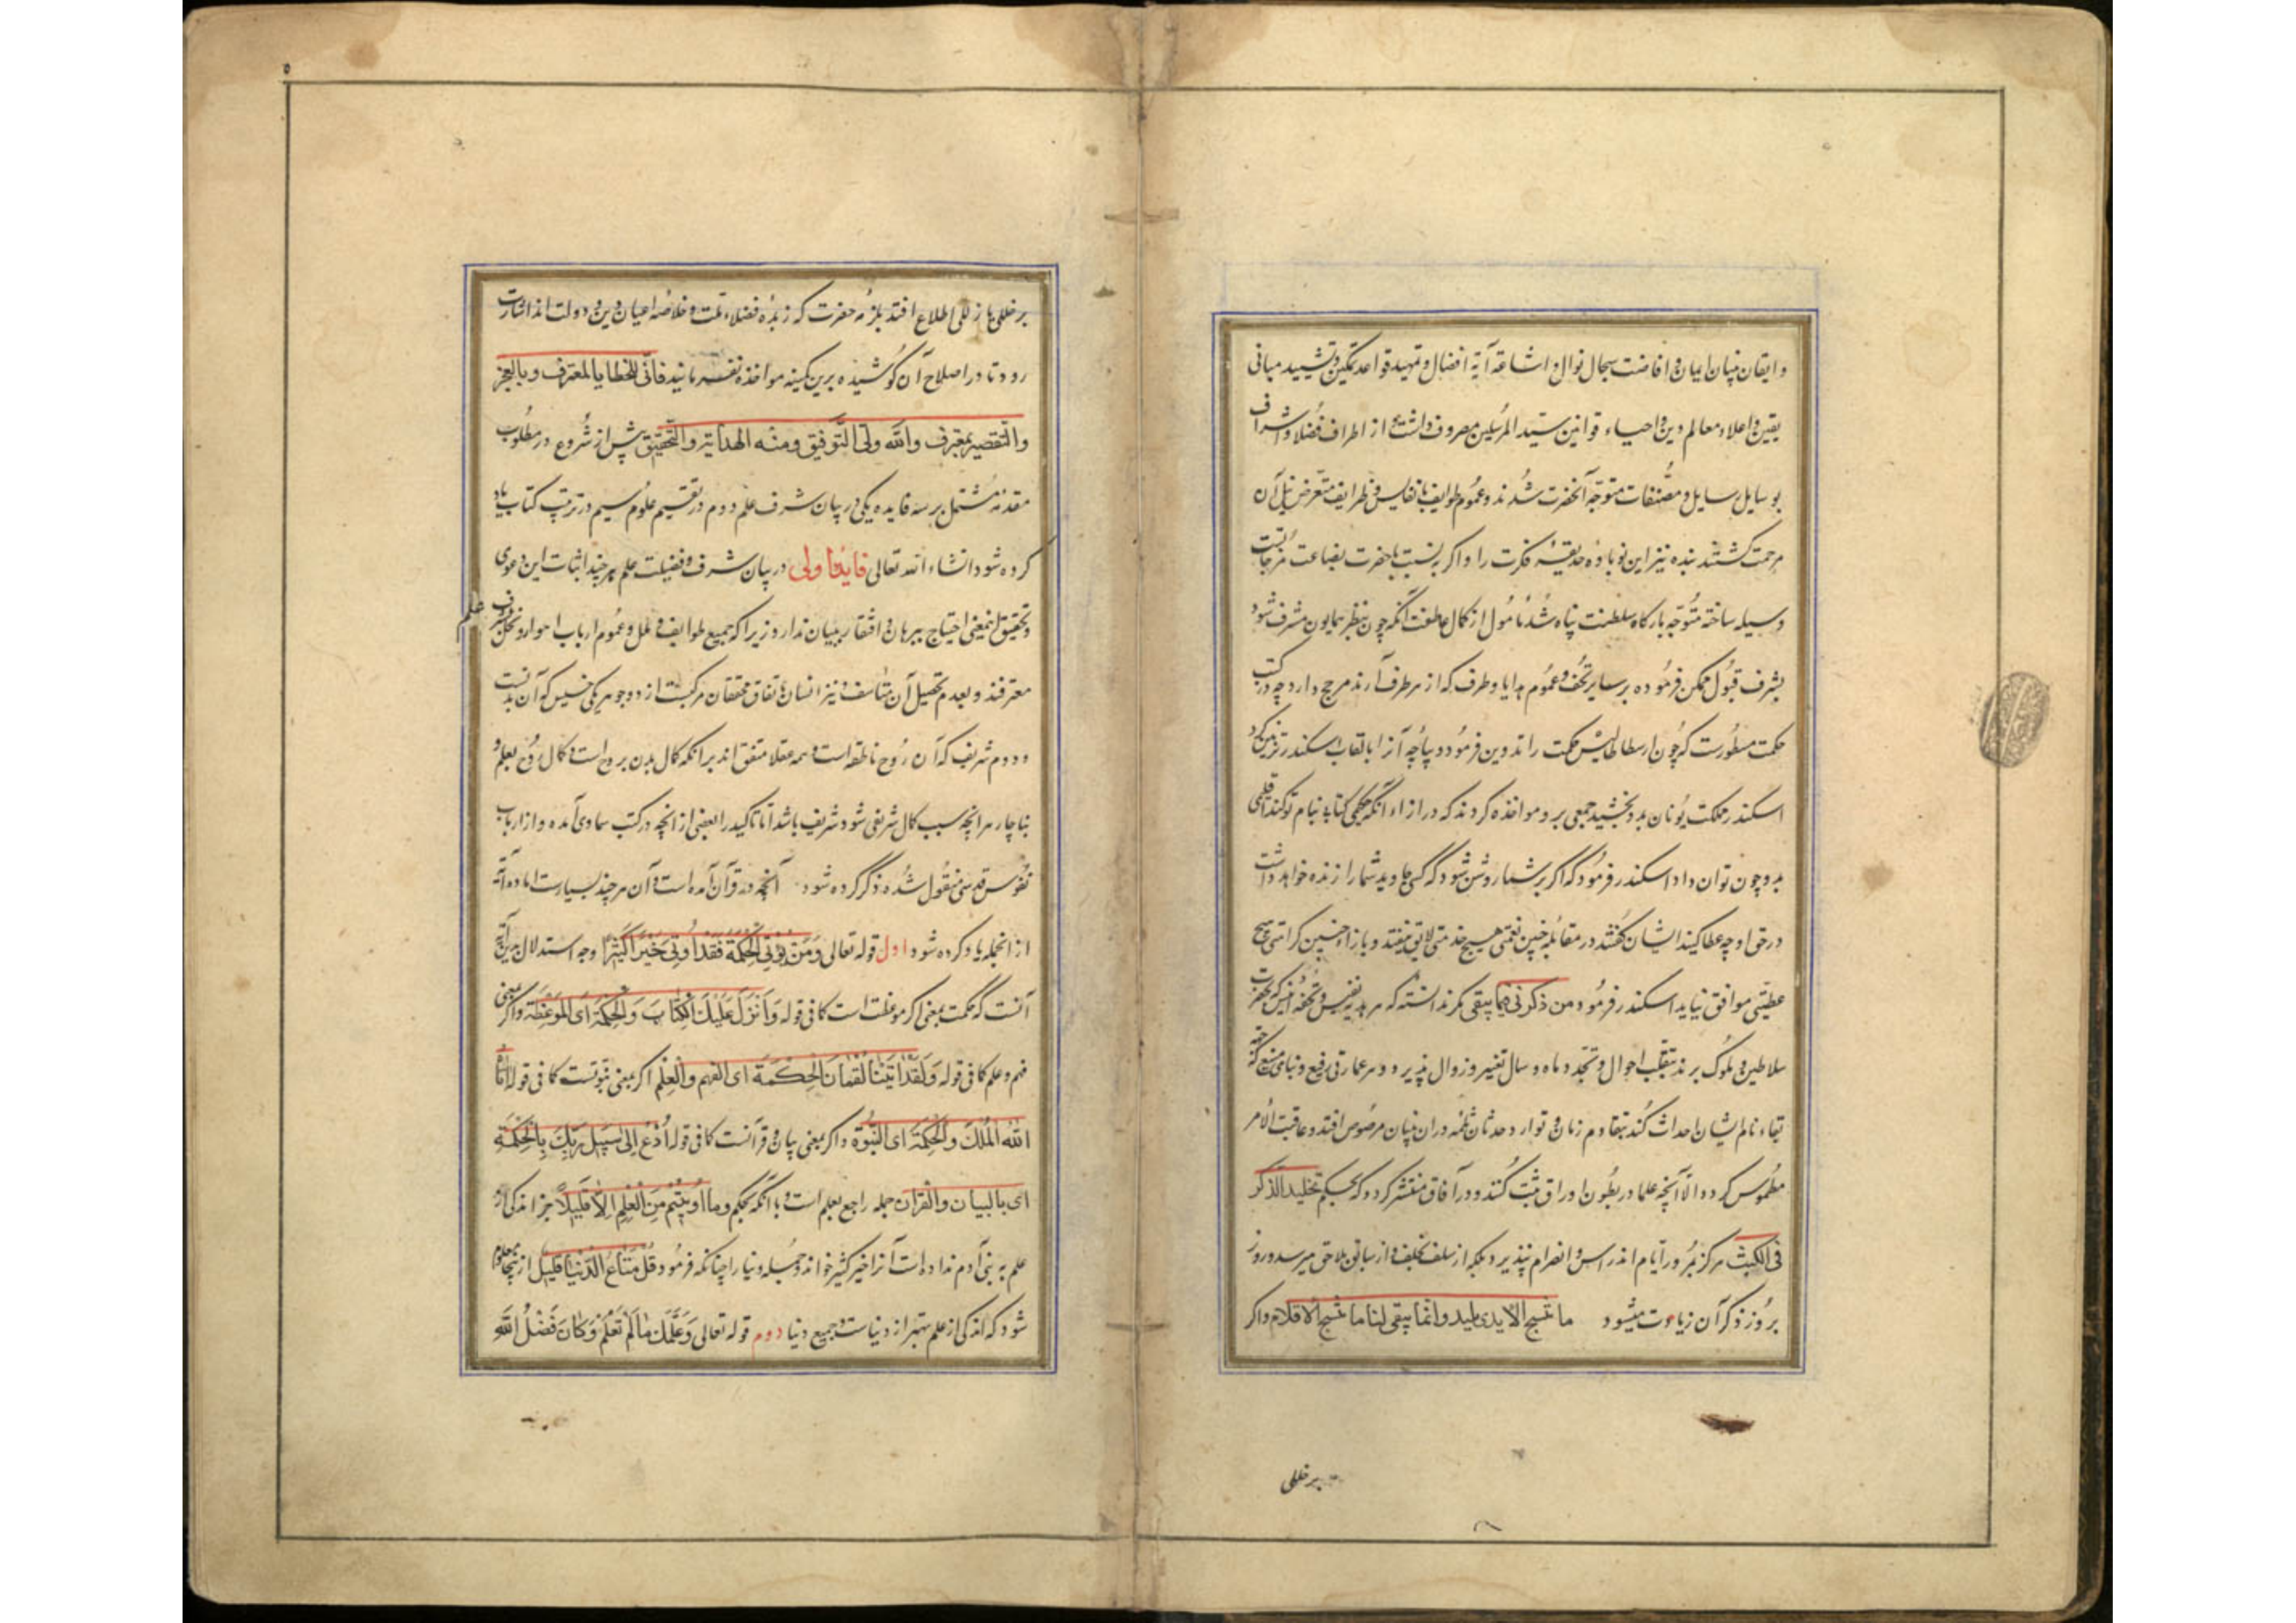 و ایقان بنیان ایمان و افاضت سجال نوال و اشاعة آیة افضال و تمهید قواعد تمکین و تشیید مبانی
یقین و اعلاء معالم دین و احیاء قوانین سید المرسلین مصروف داشته از اطراف فضلا و اشراف
بوسایل رسایل و مصنفات متوجه آنحضرت شدند و عموم طوایف با نفایس و ظرایف متعرض نیل آن
مرحمت کشتند بنده نیز این نوباوه حدیقه فکرت را و اکر به نسبت باحضرت بضاعت مزجاتست
وسیله ساخته متوجه بارکاه سلطنت پناه شد مأمول از کمال عاطفت آنکه چون بنظر همایون مشرف شود
بشرف قبول ممکن فرموده بر سایر تحف و عموم هدایا و طرف که از هر طرف آرند مرجح دارد چه در کتب
حکمت مسطورست که چون ارسطاطالیس حکمت را تدوین فرمود و دیباچه آنرا بالقاب اسکندر تزیین کرد
اسکندر مملکت یونان بدو بخشید جمعی برو مواخذه کردند که در ازاء آنکه حکیمی کتابی بنام تو کند اقلیمی
بدو چون توان داد اسکندر فرمود که اکر بر شما روشن شود که کسی جاوید شما را زنده خواهد داشت
در حق او چه عطا کنید ایشان کفتند در مقابله چنین نعمتی هیچ خدمتی لایق نیفتد و بازاء چنین کرامتی هیچ
عطیتی موافق نیاید اسکندر فرمود من ذکرنی فیما یبقی مکر ندانسته که هر هدیه نفیس و تحفه انفس که بحضرت
سلاطین و ملوک برند بتقلب احوال و تجدد ماه و سال تغییر و زوال پذیرد و هر عمارتی رفیع و بنای منیع که جهة
بقاء نام ایشان احداث کنند بتقادم زمان و توارد حدثان ثلمه در ان بنیان مرصوص افتد و عاقبت الامر
مطموس کردد الا آنچه علما در بطون اوراق ثبت کنند و در آفاق منتشر کردد که بحکم تخلید الذکر
فی الکتب هرکز بمرور ایام اندراس و انصرام نپذیرد بلکه از سلف بخلف و از سابق بلاحق میرسد و روز
بروز ذکر آن زیادت میشود ما تنسج الایدی یبلید و انما یبقی لنا ما تنسج الاقلام و اکر
برخللی
بر خللی یا زللی اطلاع افتد بلزمه حضرت که زبده فضلاء ملت و خلاصه اعیان دین و دولت اند اشارت
رود تا در اصلاح آن کوشیده برین کمینه مواخذه نفرمایند فانی للخطایا لمعترف و بالعجز
والتقصیر بمعترف والله ولی التوفیق ومنه الهدایة والتحقیق پیش از شروع در مطلوب
مقدمه مشتمل بر سه فایده یکی در بیان شرف علم دوم در تقسیم علوم سیم در ترتیب کتاب یاد
کرده شود انشاء الله تعالی فایده اولی در بیان شرف و فضیلت علم هرچند اثبات این دعوی
و تحقیق این معنی احتیاج ببرهان و افتقار ببیان ندارد زیرا که جمیع طوایف و ملل و عموم ارباب اهوا و نحل بشرف
علم
معترفند و بعدم تحصیل آن متأسف و نیز انسان باتفاق محققان مرکبست از دو جوهر یکی خسیس که آن بدنست
و دوم شریف که آن روح ناطقه است و همه عقلا متفق اند بر انکه کمال بدن بروح است و کمال روح بعلم و
بناچار هر انچه سبب کمال شریفی شود شریف باشد اما تاکید را بعضی از انچه در کتب سماوی آمده و از ارباب
نفوس قدسی منقول شده ذکر کرده شود آنچه در قرآن آمده است و آن هر چند بسیارست اما ده آیة
از انجمله یاد کرده شود اول قوله تعالی وَمَنْ یُؤْتَی الْحِکْمَةَ فَقَدْ اُوتِیَ خَیْرًا کَثِیرًا وجه استدلال بدین آیة
آنست که حکمت بمعنی اکر موعظت است کما فی قوله وَاَنْزَلَ عَلَیْکَ الْکِتَابَ وَالْحِکْمَةَ ای المَوعِظَة و اکر بمعنی
فهم و علم کما فی قوله وَلَقَدْ اٰتَیْنَا لُقْمَانَ الْحِکْمَةَ ای الفهم والعلم اکر بمعنی نبوتست کما فی قوله اٰتَاهُ
اللهُ الْمُلْکَ وَالْحِکْمَةَ ای النُّبُوَّة و اکر بمعنی بیان و قرآنست کما فی قوله اُدْعُ اِلیٰ سَبِیلِ رَبِّکَ بِالْحِکْمَةِ
ای بالبیان والقران جمله راجع بعلم است با آنکه بحکم وما اُوتِیتُمْ مِنَ الْعِلْمِ اِلَّا قَلِیلًا جز اندکی از
علم به بنی آدم نداده است آنرا خیر کثیر خواند و جمله دنیا را چنانکه فرمود قُلْ مَتَاعُ الدُّنْیَا قَلِیلٌ از ینجا معلوم
شود که اندکی از علم بهتر از دنیاست و جمیع دنیا دوم قوله تعالی وَعَلَّمَکَ مَا لَمْ تَعْلَمُ وَکَانَ فَضْلُ اللهِ